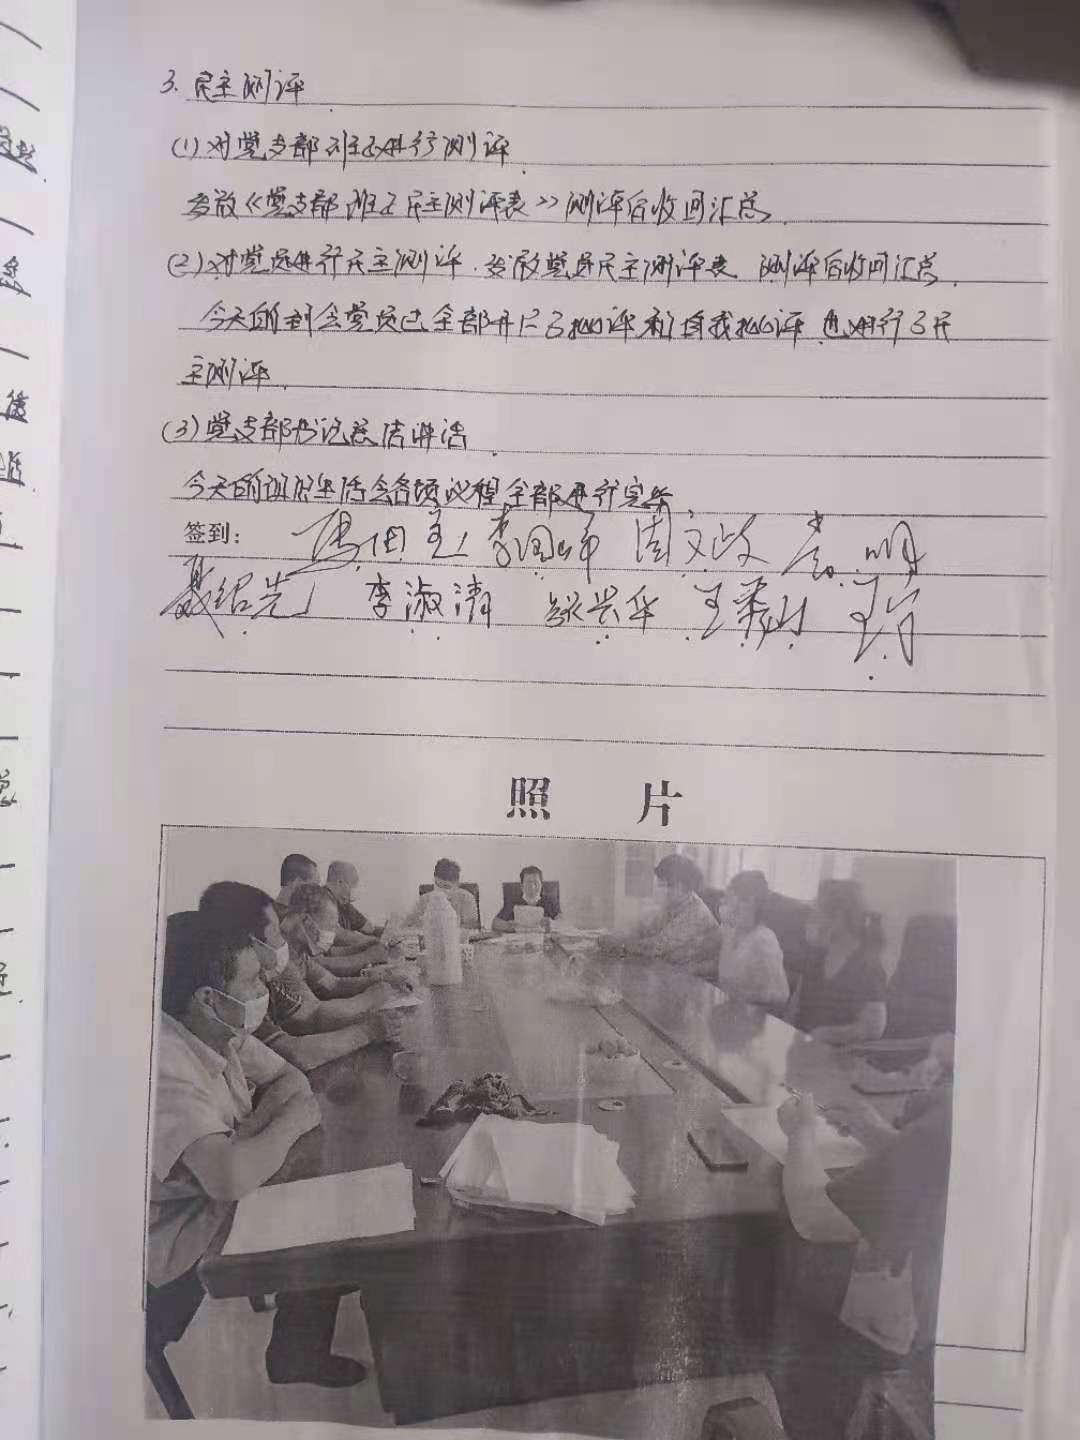 3. 民主测评
(1)对党支部班子进行测评
发放《党支部班子民主测评表》测评后收回汇总
(2)对党员进行民主测评.发放党员民主测评表 测评后收回汇总
今天的到会党员已全部开广了批评和自我批评 也进行了民
主测评
(3)党支部书记总结讲话
今天的组织生活会各项议程全部进行完毕
签到： 李国师 周文政 袁明
聂绍先 李淑清 兴华 王秉 王
照 片